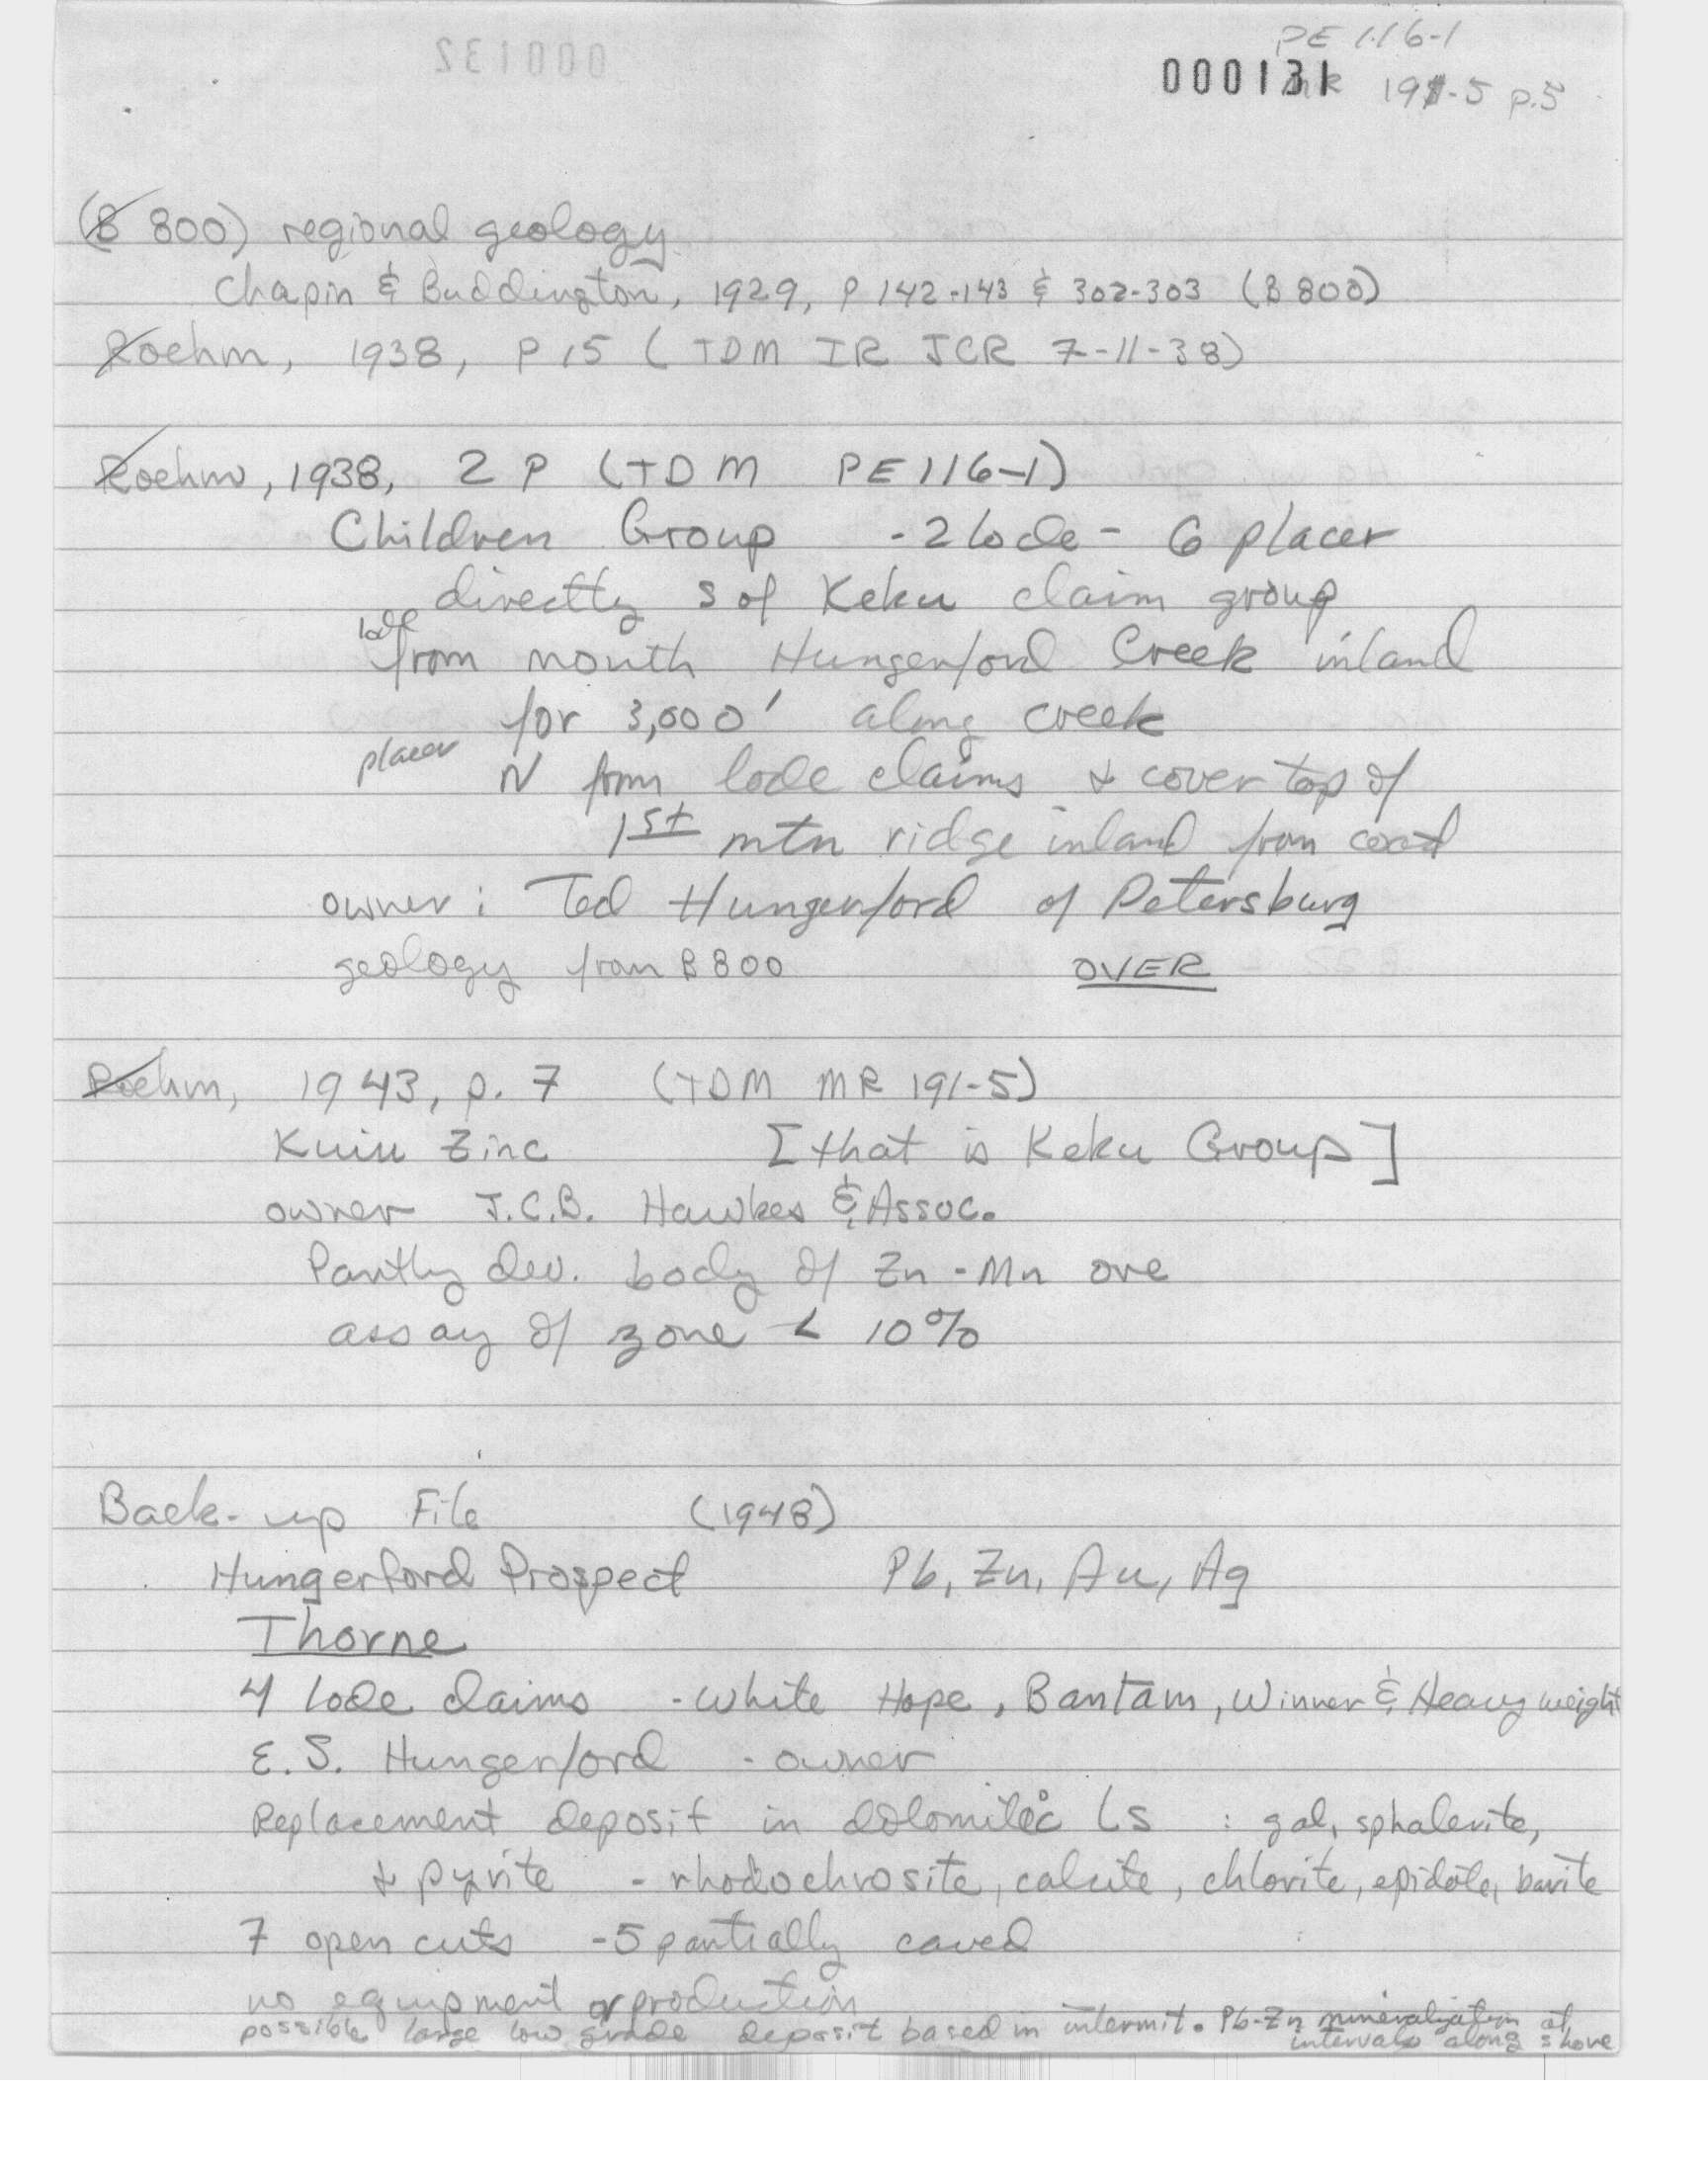 PE 116-1
000131 MR 191-5 p.5
000132
(B 800) regional geology
Chapin & Buddington, 1929, p 142-143 & 302-303 (B 800)
Roehm, 1938, p 15 (TDM IR JCR 7-11-38)
Roehm, 1938, 2 p (TDM PE 116-1)
Children Group - 2 lode - 6 placer
directly S of Keku claim group
lode
from mouth Hungerford Creek inland
for 3,000' along creek
placer
N from lode claims & cover top of
1st mtn ridge inland from coast
owner: Ted Hungerford of Petersburg
geology from B 800 OVER
Roehm, 1943, p. 7 (TDM MR 191-5)
Kuiu Zinc [that is Keku Group]
owner J.C.B. Hawkes & Assoc.
Partly dev. body of Zn-Mn ore
assay of zone < 10%
Back-up File (1948)
Hungerford Prospect Pb, Zn, Au, Ag
Thorne
4 lode claims - White Hope, Bantam, Winner & Heavy weight
E. S. Hungerford - owner
Replacement deposit in dolomitic Ls : gal, sphalerite,
& pyrite - rhodochrosite, calcite, chlorite, epidote, barite
7 open cuts - 5 partially caved
no equipment or production
possible large low grade deposit based in intermit. Pb-Zn mineralization at
intervals along shore